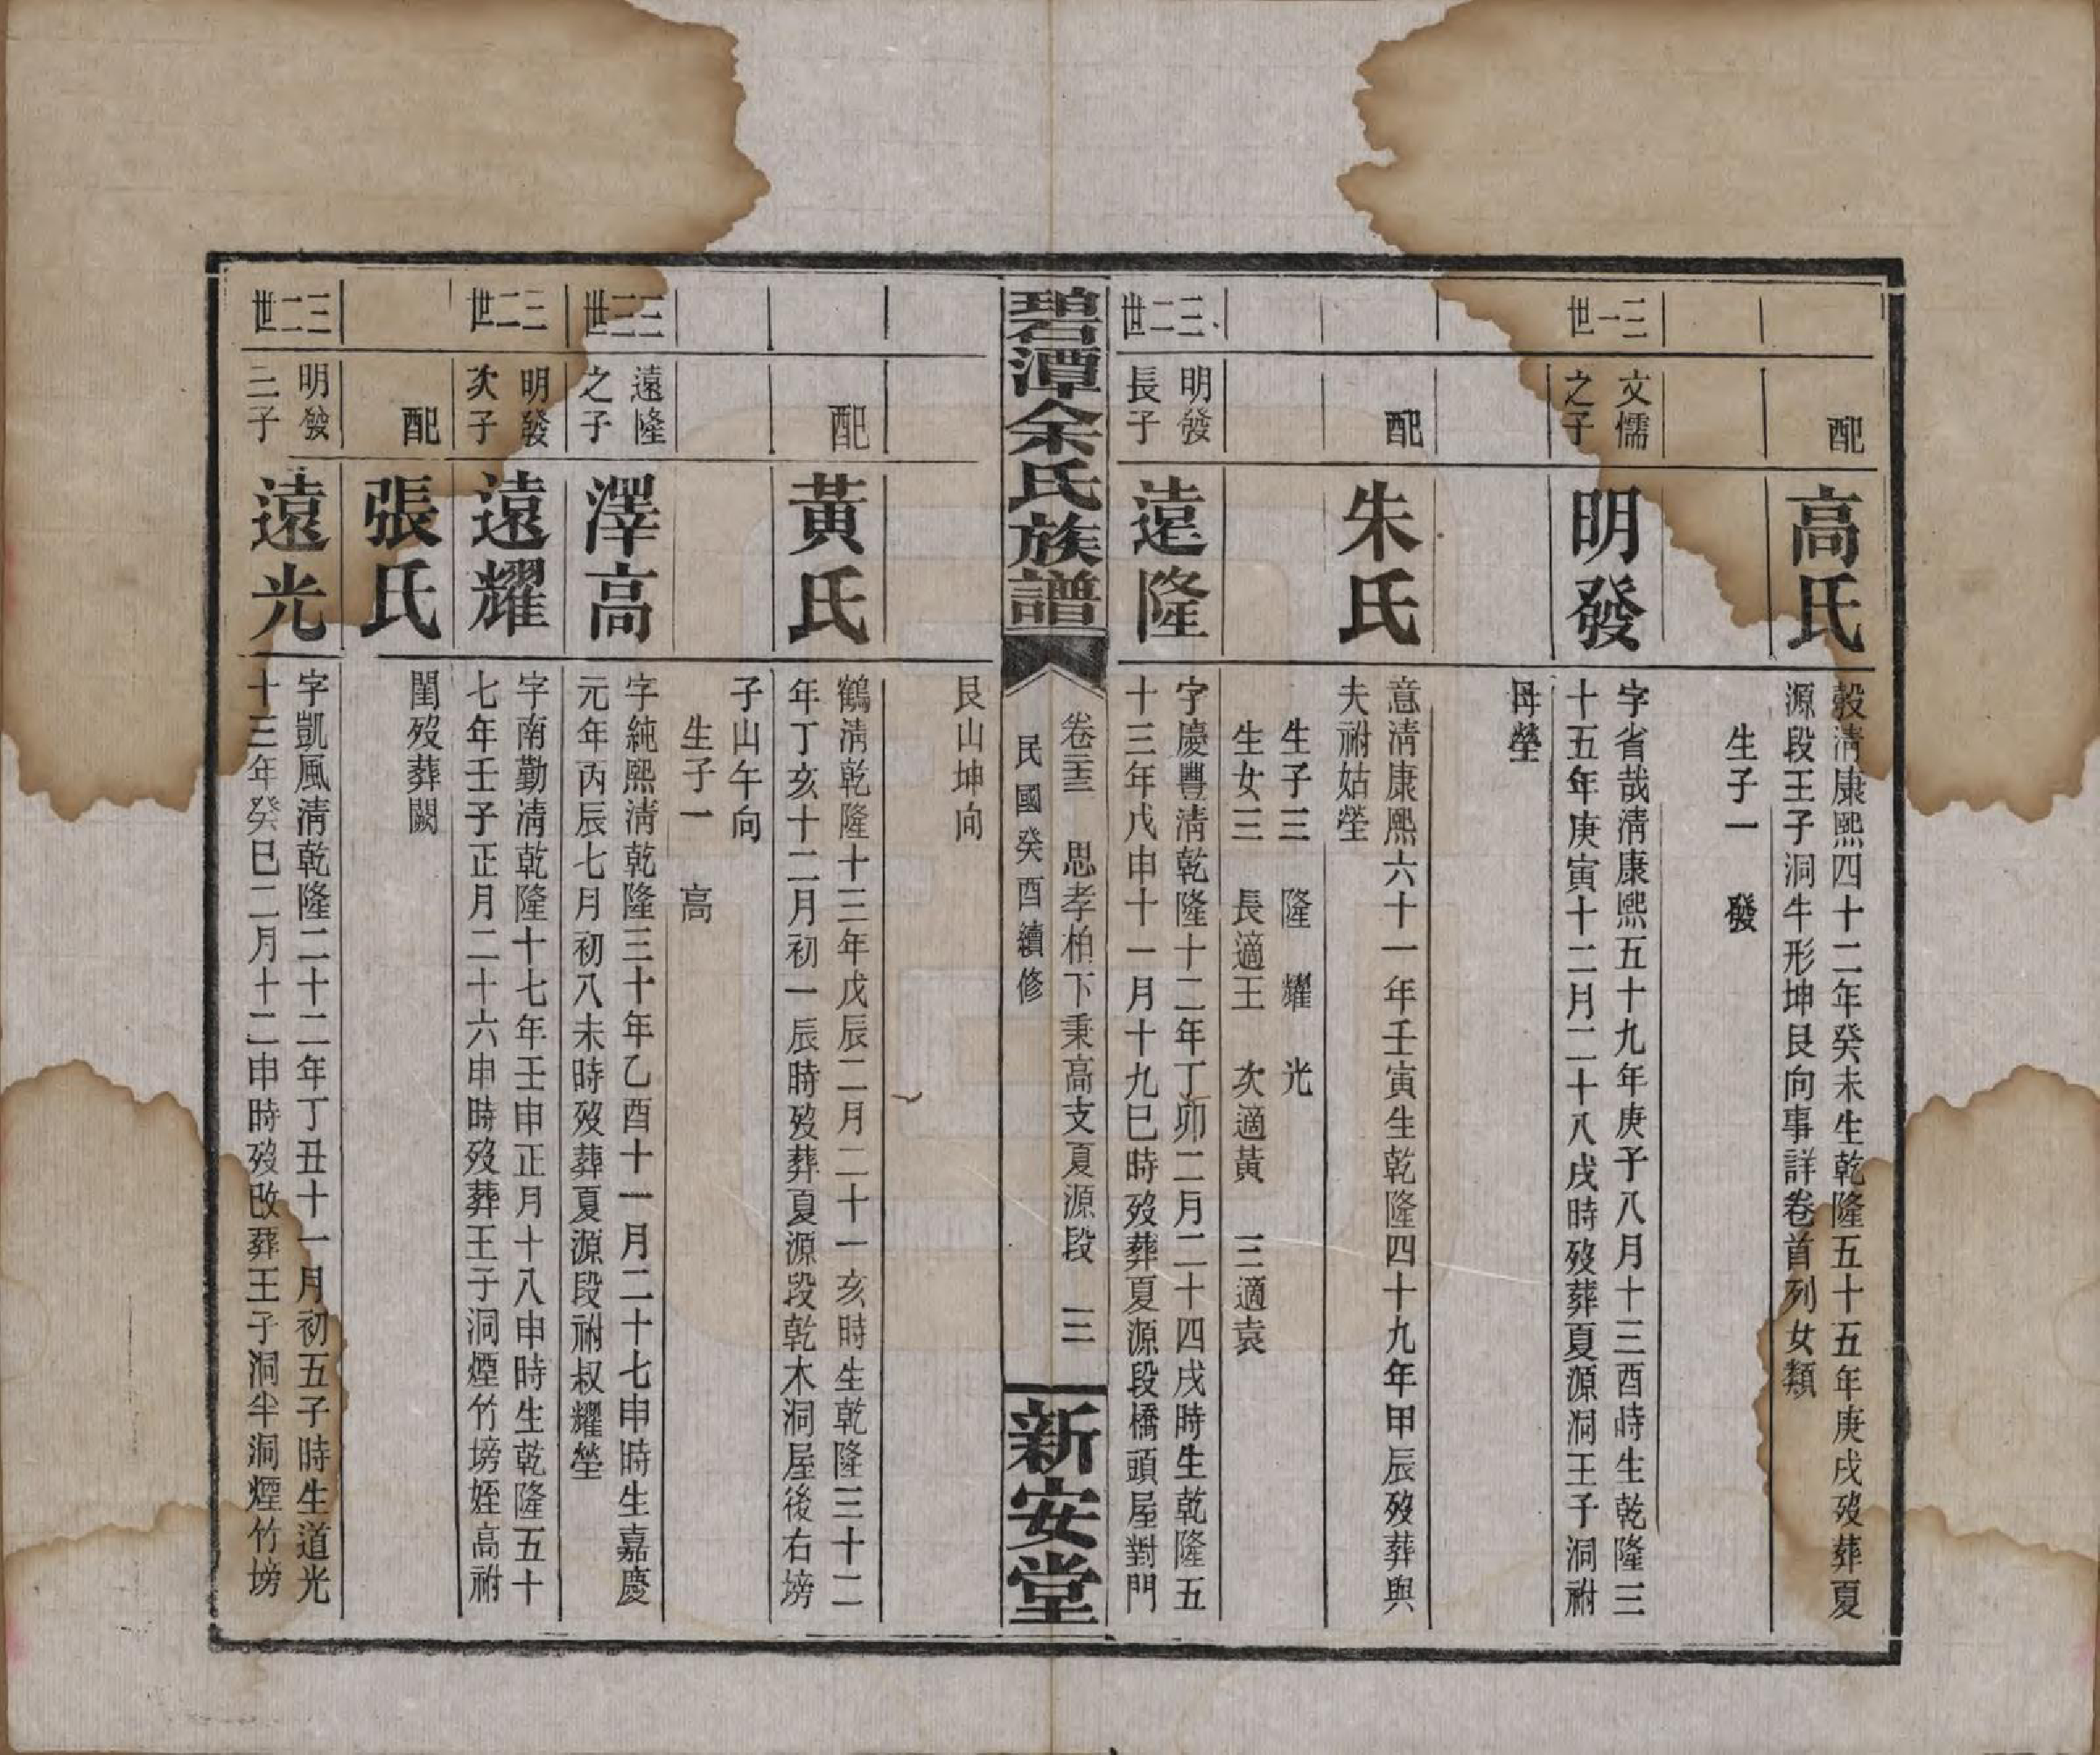 配
高氏
㝅淸康熙四十二年癸未生乾隆五十五年庚戌歿葬夏
源段王子洞牛形坤艮向事詳卷首列女類
生子一　發
三一世
文儒
之子
明發
字省哉淸康熙五十九年庚子八月十三酉時生乾隆三
十五年庚寅十二月二十八戌時歿葬夏源洞王子洞祔
母塋
配
朱氏
意淸康熙六十一年壬寅生乾隆四十九年甲辰歿葬與
夫祔姑塋
生子三　隆　耀　光
生女三　長適王　次適黃　三適袁
三二世
明發
長子
遠隆
字慶豐淸乾隆十二年丁卯二月二十四戌時生乾隆五
十三年戊申十一月十九巳時歿葬夏源段橋頭屋對門
碧潭余氏族譜
卷三十三　思孝柏下秉高支夏源段　三
民國癸酉續修
新安堂
艮山坤向
配
黃氏
鶴淸乾隆十三年戊辰二月二十一亥時生乾隆三十二
年丁亥十二月初一辰時歿葬夏源段乾木洞屋後右塝
子山午向
生子一　高
三三世
遠隆
之子
澤高
字純熙淸乾隆三十年乙酉十一月二十七申時生嘉慶
元年丙辰七月初八未時歿葬夏源段祔叔耀塋
三二世
明發
次子
遠耀
字南勤淸乾隆十七年壬申正月十八申時生乾隆五十
七年壬子正月二十六申時歿葬王子洞煙竹塝姪高祔
配
張氏
閨歿葬闕
三二世
明發
三子
遠光
字凱風淸乾隆二十二年丁丑十一月初五子時生道光
十三年癸巳二月十二申時歿改葬王子洞半洞煙竹塝